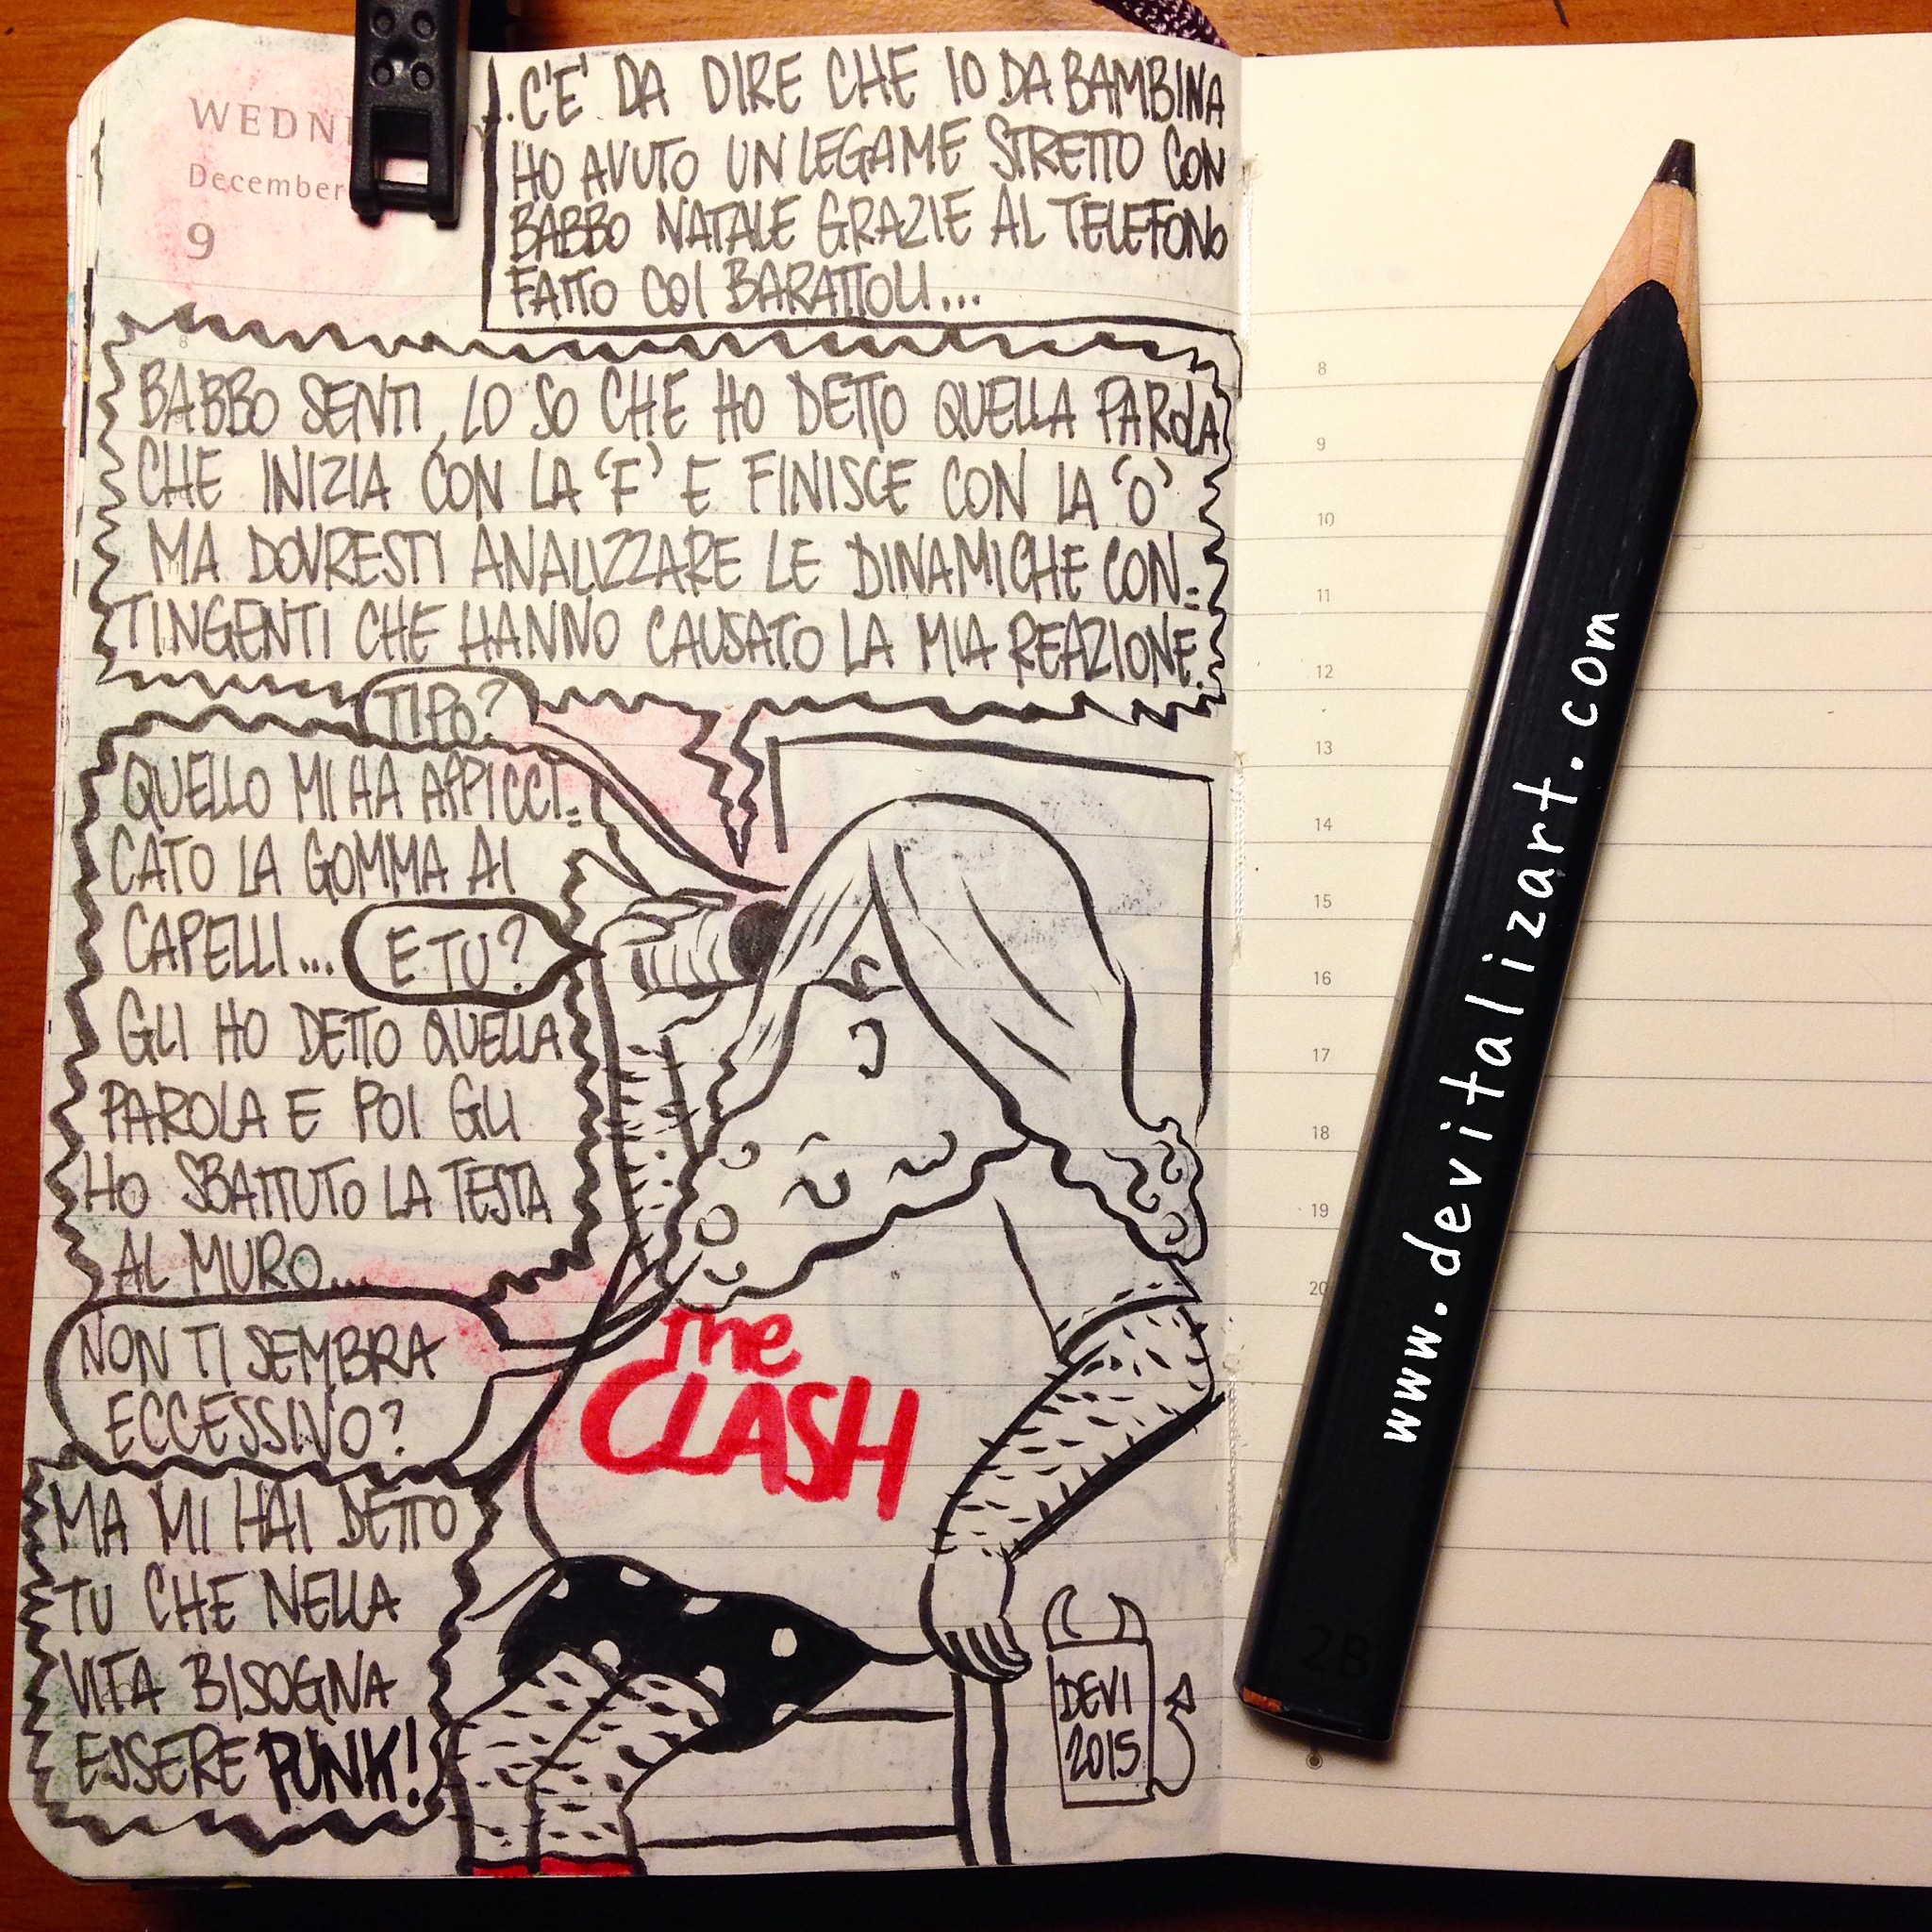 WEDN
December
9
... C'E' DA DIRE CHE IO DA BAMBINA
HO AVUTO UN LEGAME STRETTO CON
BABBO NATALE GRAZIE AL TELEFONO
FATTO COI BARATTOLI...
BABBO SENTI, LO SO CHE HO DETTO QUELLA PAROLA
CHE INIZIA CON LA 'F' E FINISCE CON LA 'O'
MA DOVRESTI ANALIZZARE LE DINAMICHE CON=
TINGENTI CHE HANNO CAUSATO LA MIA REAZIONE.
TIPO?
QUELLO MI HA APPICCI=
CATO LA GOMMA AI
CAPELLI...
E TU?
GLI HO DETTO QUELLA
PAROLA E POI GLI
HO SBATTUTO LA TESTA
AL MURO...
NON TI SEMBRA
ECCESSIVO?
MA MI HAI DETTO
TU CHE NELLA
VITA BISOGNA
ESSERE PUNK!
The
CLASH
DEVI
2015
8
9
10
11
12
13
14
15
16
17
18
19
20
www.devitalizart.com
2B